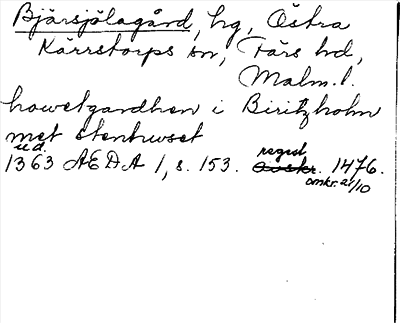 Bjärsjölagård, hg, Östra
Kärrstorps sn, Färs hd,
Malm. l.
howetgardhen i Biritzholm
met stenhwset
u.d.
1363 AEDA 1, s. 153. regest 1476.
omkr. 21/10